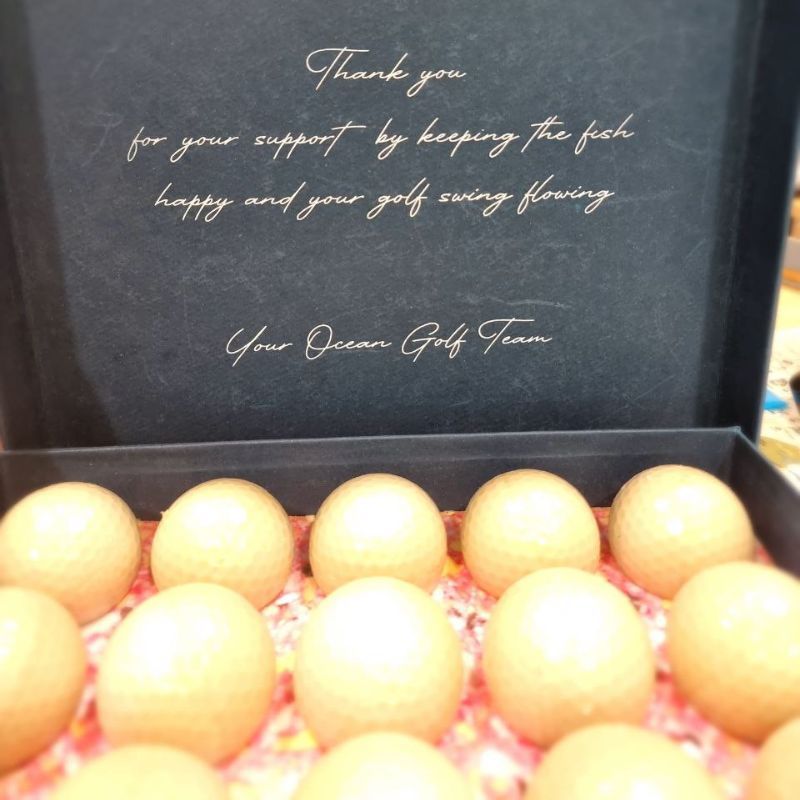 Thank you
for your support by keeping the fish
happy and your golf swing flowing
Your Ocean Golf Team